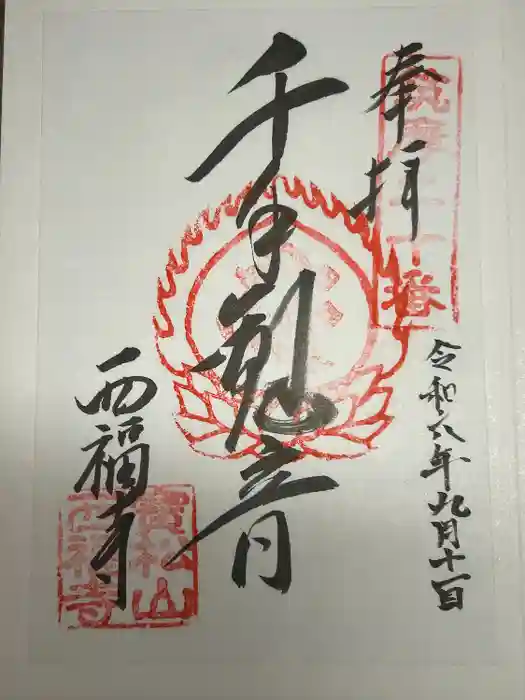 奉拝
令和六年九月十一日
千手観音
西福寺
寶松山
西福寺